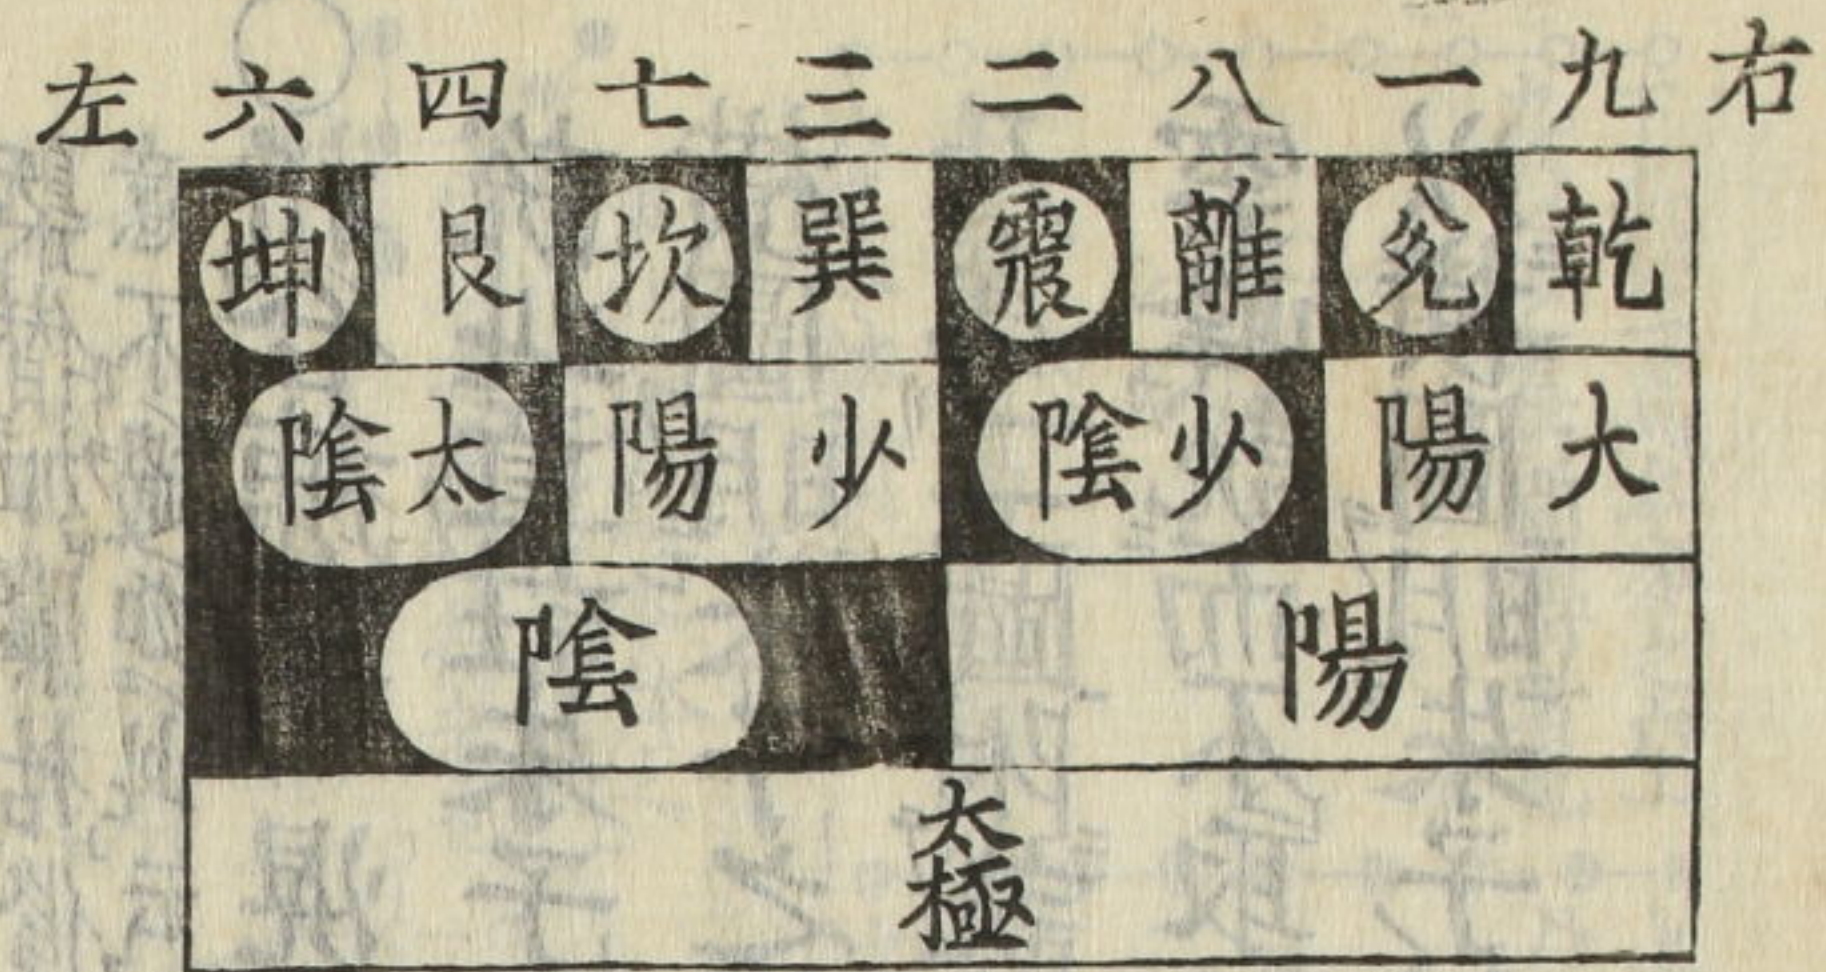 右九一八二三七四六左
乾兊離震巽坎艮坤
大陽少陰少陽太陰
陽陰
太極